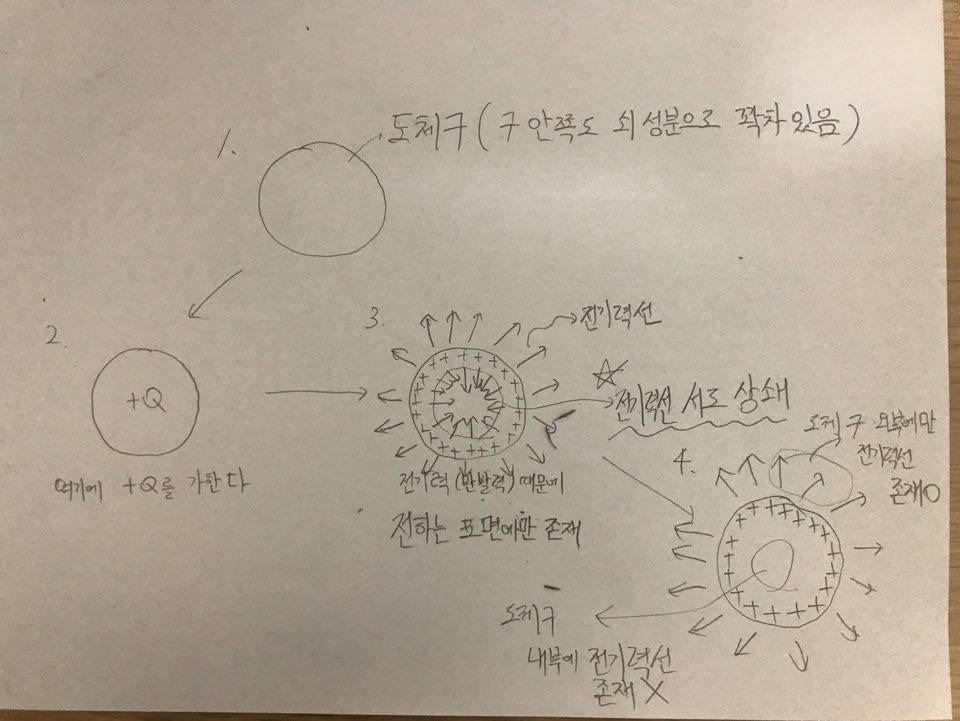 1.
도체구 (구 안쪽도 쇠 성분으로 꽉차 있음)
2.
+Q
여기에 +Q를 가한다
3.
전기력선
☆
전기력선 서로 상쇄
전기력(반발력) 때문에
전하는 표면에만 존재
4.
도체구 외부에만
전기력선
존재O
도체구
내부에 전기력선
존재 X